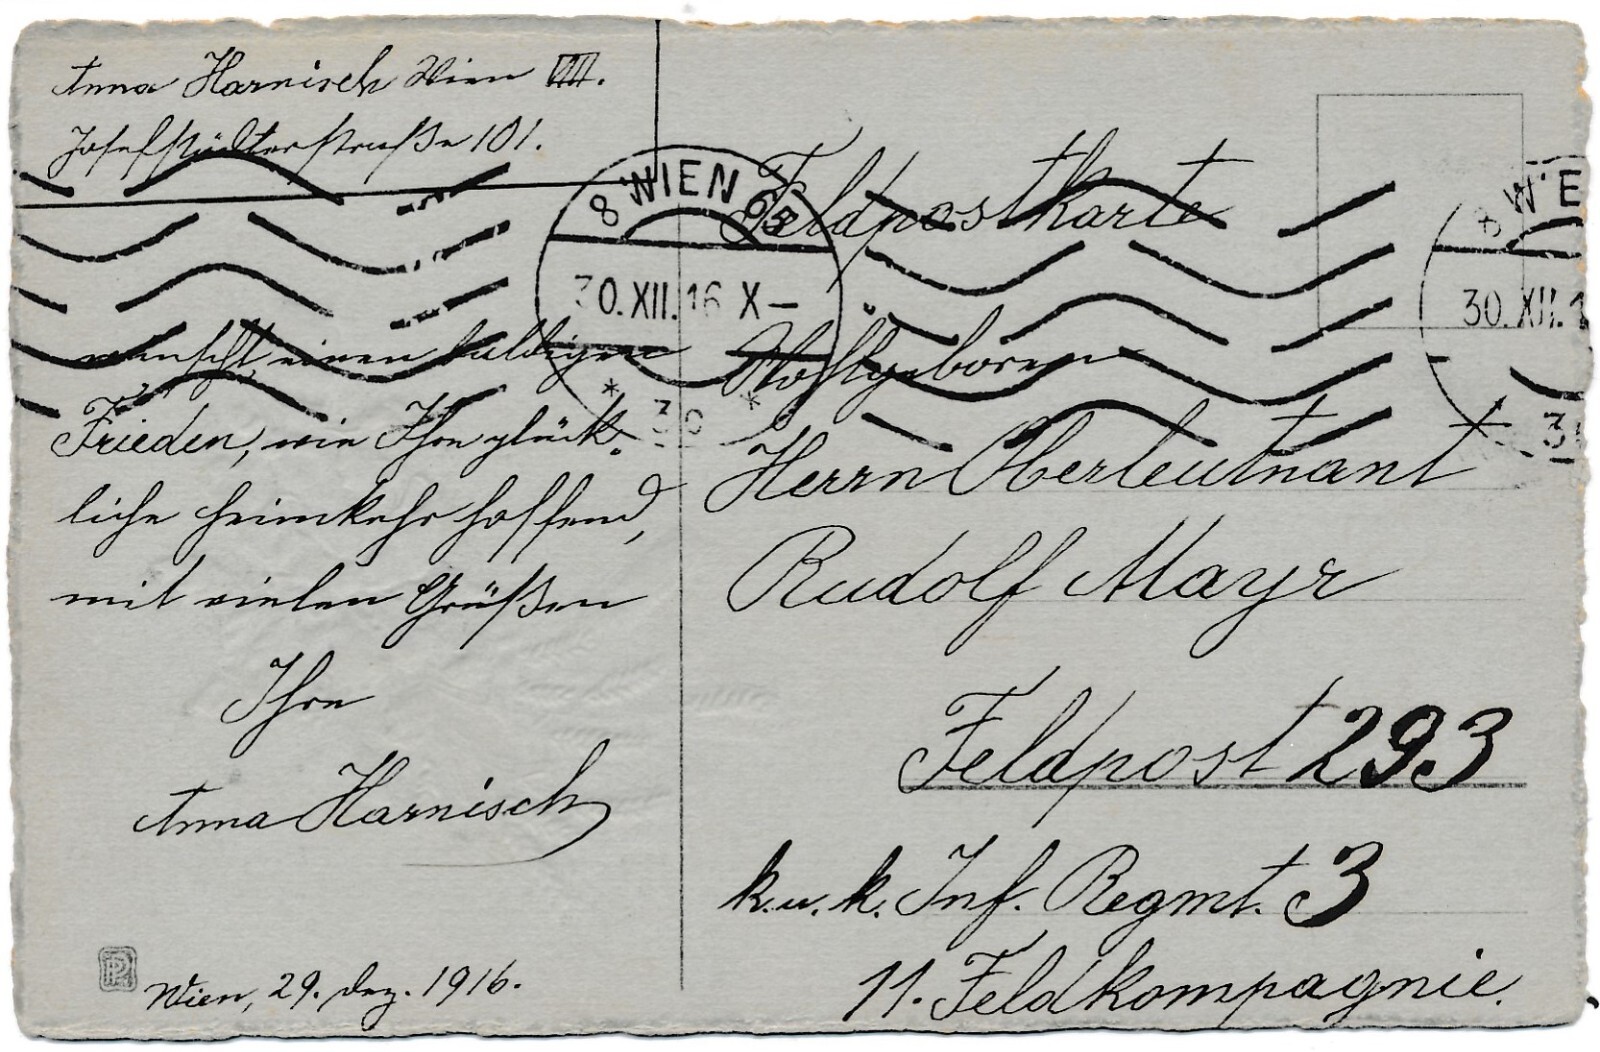 Anna Harnisch Wien VIII.
Josefstädterstraße 101.
8 WIEN 65
30.XII.16 X–
* 30 *
8 WIE
30.XII.1
Feldpostkarte
wünscht, einen baldigen
Frieden, wie Ihre glück-
liche Heimkehr hoffend,
mit vielen Grüßen
Ihre
Anna Harnisch
Wien, 29. Dez. 1916.
Hochgeboren
Herrn Oberleutnant
Rudolf Mayr
Feldpost 293
k.u.k. Inf. Regmt. 3
11. Feldkompagnie.